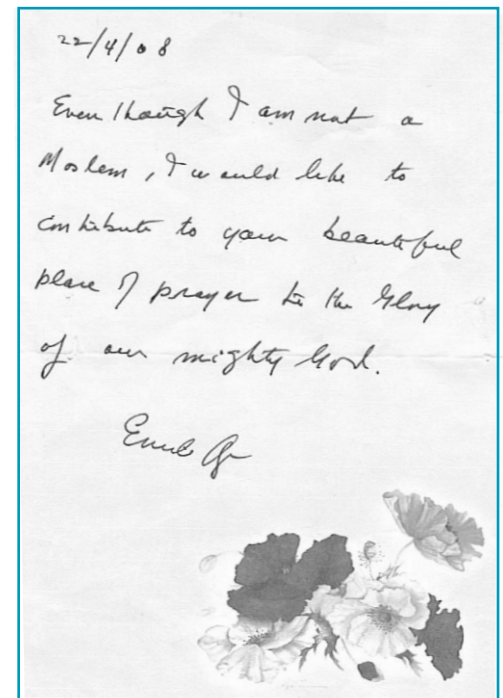 22/4/08
Even though I am not a
Moslem, I would like to
contribute to your beautiful
place of prayer to the Glory
of our mighty God.